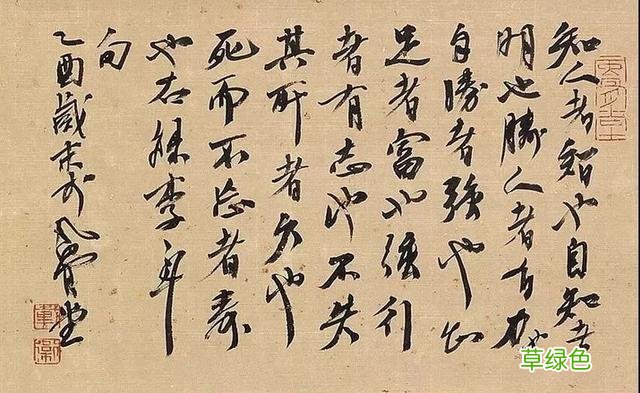 知人者智也自知者
明也勝人者有力也
自勝者強也知
足者富也強行
者有志也不失
其所者久也
死而不忘者壽
也右錄李耳
句
乙酉歲末於堂
草绿色